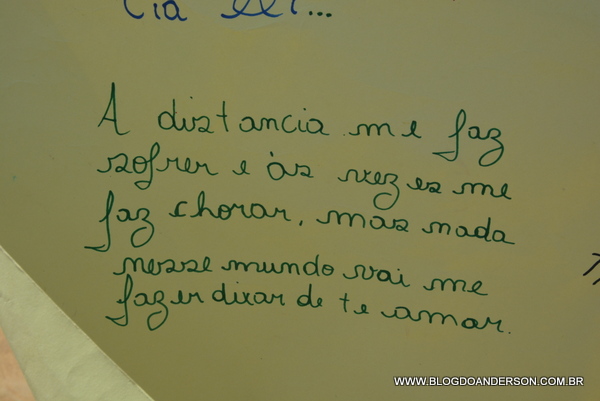 A distancia me faz
sofrer e às vezes me
faz chorar, mas nada
nesse mundo vai me
fazer dixar de te amar.
WWW.BLOGDOANDERSON.COM.BR